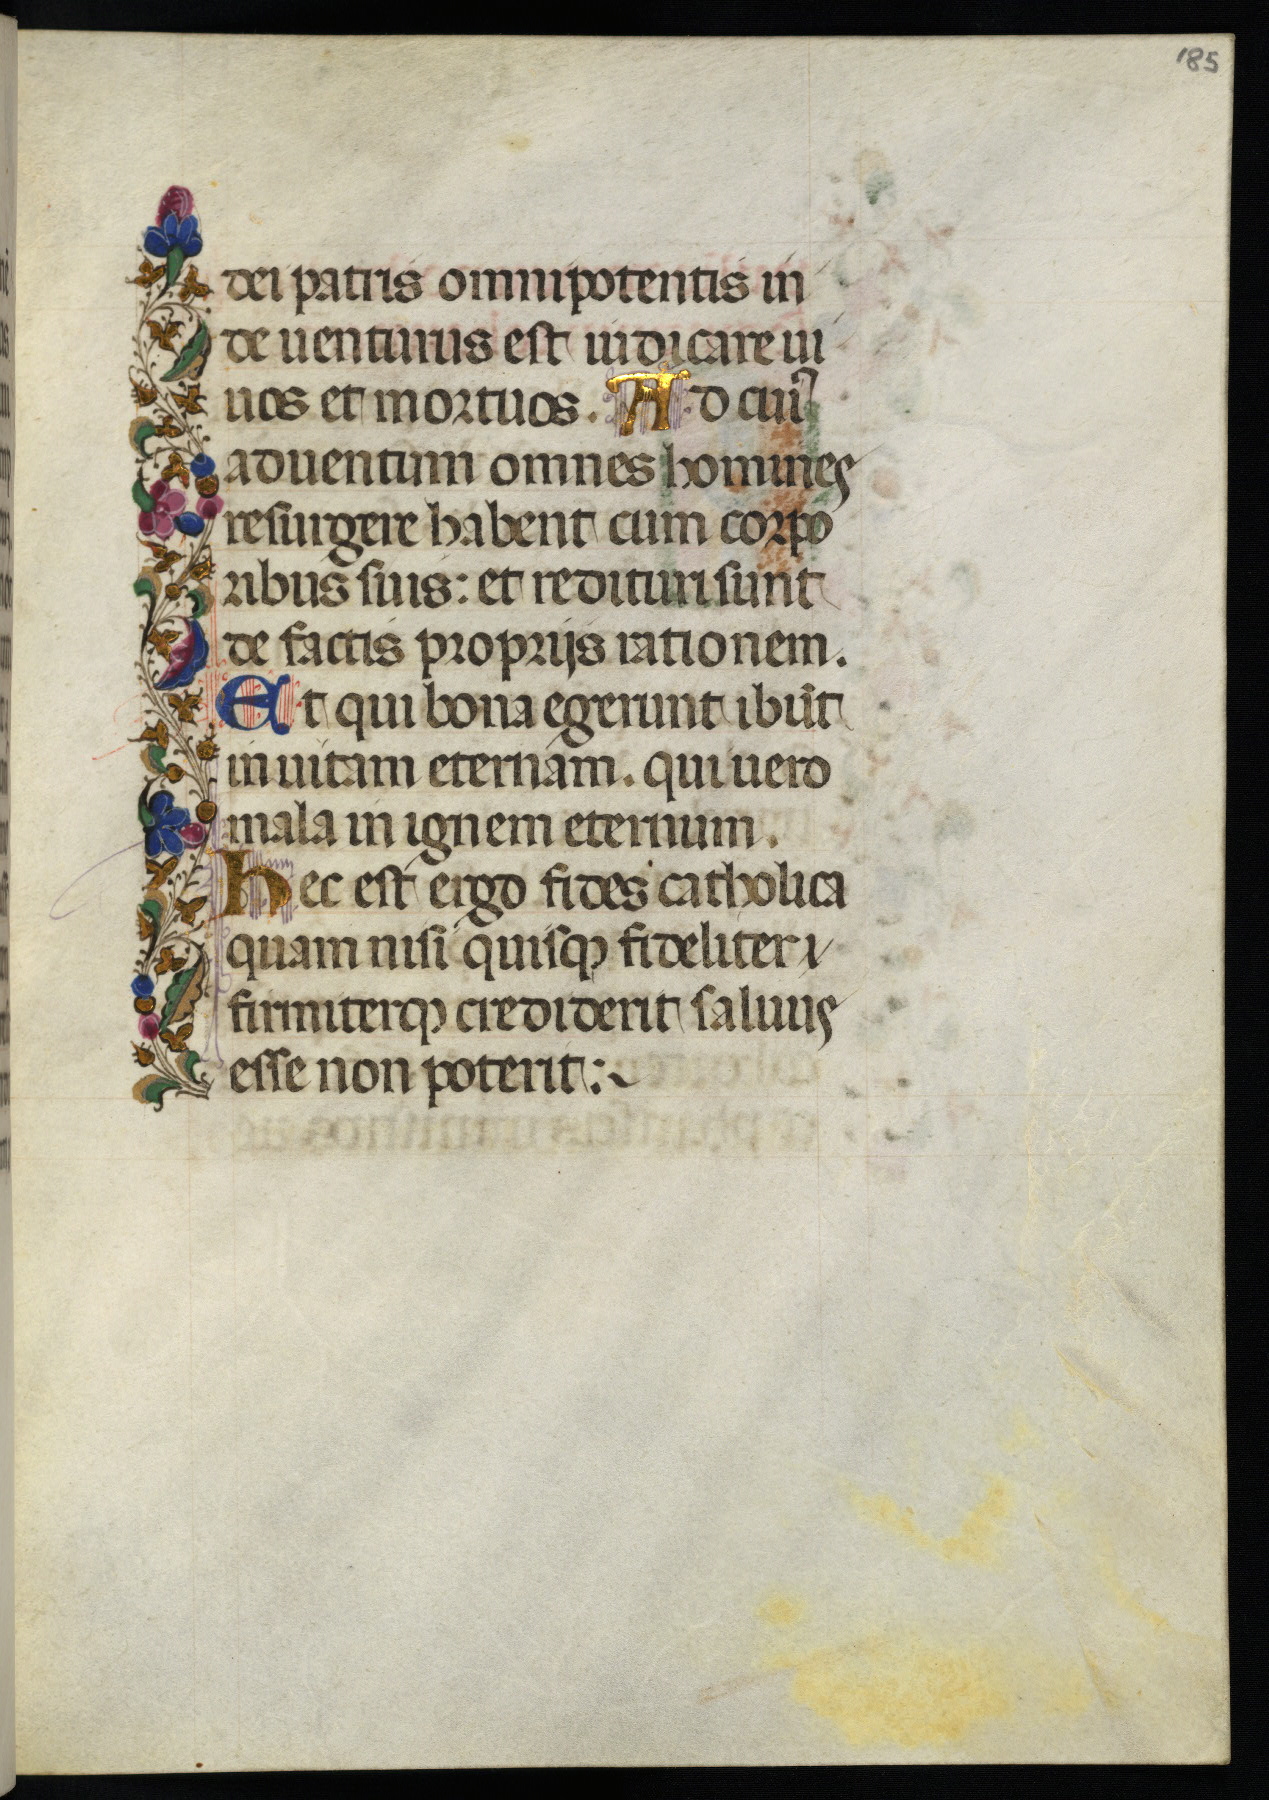 185
dei patris omnipotentis in
de uenturus est iudicare ui
uos et mortuos. Ad cuiꝰ
aduentum omnes homines
resurgere habent cum corpo
ribus suis: et reddituri sunt
de factis proprijs rationem.
Et qui bona egerunt ibūt
in uitam eternam. qui uero
mala in ignem eternum.
hec est ergo fides catholica
quam nisi quisqꝫ fideliter
firmiterqꝫ crediderit saluus
esse non poterit: